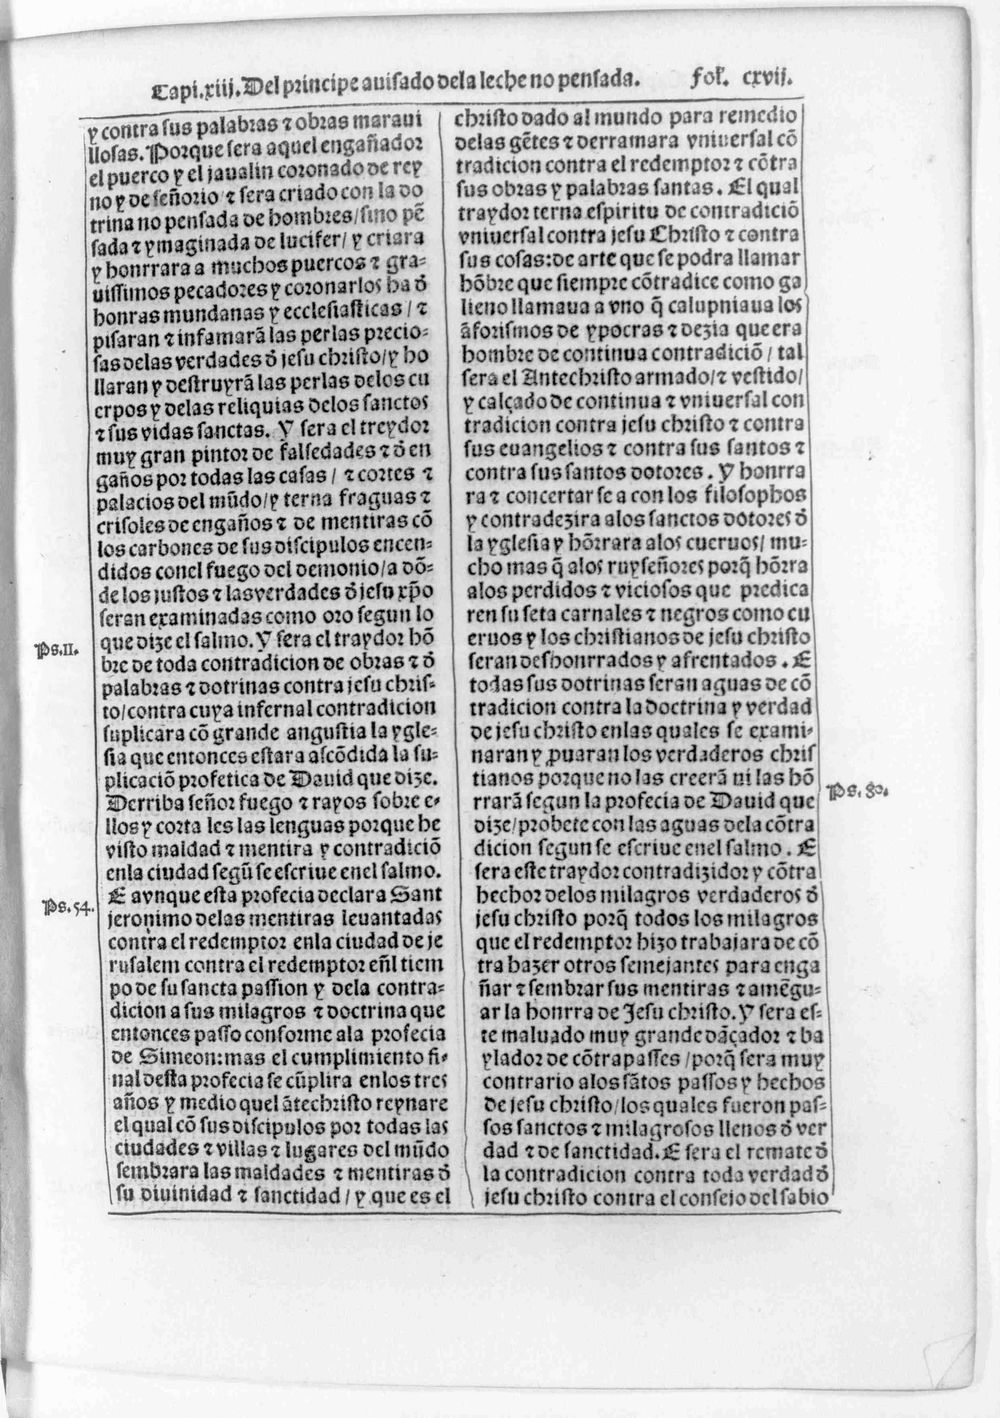 Capi.xiij. Del principe auisado dela leche no pensada. fol. cxvij.
y contra sus palabras ⁊ obras maraui
llosas. Porque sera aquel engañador
el puerco y el jaualin coronado de rey
no y de señorio ⁊ sera criado con la do
trina no pensada de hombres/sino pē
sada ⁊ ymaginada de lucifer/ y criara
y honrrara a muchos puercos ⁊ gra-
uissimos pecadores y coronarlos ha d̄
honras mundanas y ecclesiasticas / ⁊
pisaran ⁊ infamarā las perlas precio-
sas delas verdades d̄ jesu christo/y ho
llaran y destruyrā las perlas delos cu
erpos y delas reliquias delos sanctos
⁊ sus vidas sanctas. Y sera el treydor
muy gran pintor de falsedades ⁊ d̄ en
gaños por todas las casas / ⁊ cortes ⁊
palacios del mūdo/y terna fraguas ⁊
crisoles de engaños ⁊ de mentiras cō
los carbones de sus discipulos encen-
didos conel fuego del demonio/a dō-
de los justos ⁊ las verdades d̄ jesu xp̄o
seran examinadas como oro segun lo
Ps.II. que dize el salmo. Y sera el traydor hō
bre de toda contradicion de obras ⁊ d̄
palabras ⁊ dotrinas contra jesu chris-
to/contra cuya infernal contradicion
suplicara cō grande angustia la ygle-
sia que entonces estara ascōdida la su-
plicaciō profetica de Dauid que dize.
Derriba señor fuego ⁊ rayos sobre e-
llos y corta les las lenguas porque he
visto maldad ⁊ mentira y contradiciō
enla ciudad segū se escriue enel salmo.
Ps.54. E avnque esta profecia declara Sant
jeronimo delas mentiras leuantadas
contra el redemptor enla ciudad de je
rusalem contra el redemptor en̄l tiem
po de su sancta passion y dela contra-
dicion a sus milagros ⁊ doctrina que
entonces passo conforme ala profecia
de Simeon:mas el cumplimiento fi-
nal desta profecia se cūplira enlos tres
años y medio quel ātechristo reynare
el qual cō sus discipulos por todas las
ciudades ⁊ villas ⁊ lugares del mūdo
sembrara las maldades ⁊ mentiras d̄
su diuinidad ⁊ sanctidad / y que es el
christo dado al mundo para remedio
delas gētes ⁊ derramara vniuersal cō
tradicion contra el redemptor ⁊ cōtra
sus obras y palabras santas. El qual
traydor terna espiritu de contradiciō
vniuersal contra jesu Christo ⁊ contra
sus cosas:de arte que se podra llamar
hōbre que siempre cōtradice como ga
lieno llamaua a vno q̄ calupniaua los
āforismos de ypocras ⁊ dezia que era
hombre de continua contradiciō / tal
sera el Antechristo armado/⁊ vestido/
y calçado de continua ⁊ vniuersal con
tradicion contra jesu christo ⁊ contra
sus euangelios ⁊ contra sus santos ⁊
contra sus santos dotores. Y honrra
ra ⁊ concertar se a con los filosophos
y contradezira alos sanctos dotores d̄
la yglesia y hōrrara alos cueruos/ mu-
cho mas q̄ alos ruyseñores porq̄ hōrra
alos perdidos ⁊ viciosos que predica
ren su seta carnales ⁊ negros como cu
eruos y los christianos de jesu christo
seran deshonrrados y afrentados. E
todas sus dotrinas seran aguas de cō
tradicion contra la doctrina y verdad
de jesu christo enlas quales se exami-
naran y ꝓuaran los verdaderos chris
tianos porque no las creerā ni las hō
rrarā segun la profecia de Dauid que Ps.80.
dize/probete con las aguas dela cōtra
dicion segun se escriue enel salmo. E
sera este traydor contradizidor y cōtra
hechor delos milagros verdaderos d̄
jesu christo porq̄ todos los milagros
que el redemptor hizo trabajara de cō
tra hazer otros semejantes para enga
ñar ⁊ sembrar sus mentiras ⁊ amēgu-
ar la honrra de Jesu christo. Y sera es-
te maluado muy grande dāçador ⁊ ba
ylador de cōtrapasses /porq̄ sera muy
contrario alos sātos passos y hechos
de jesu christo/los quales fueron pas-
sos sanctos ⁊ milagrosos llenos d̄ ver
dad ⁊ de sanctidad. E sera el remate d̄
la contradicion contra toda verdad d̄
jesu christo contra el consejo del sabio